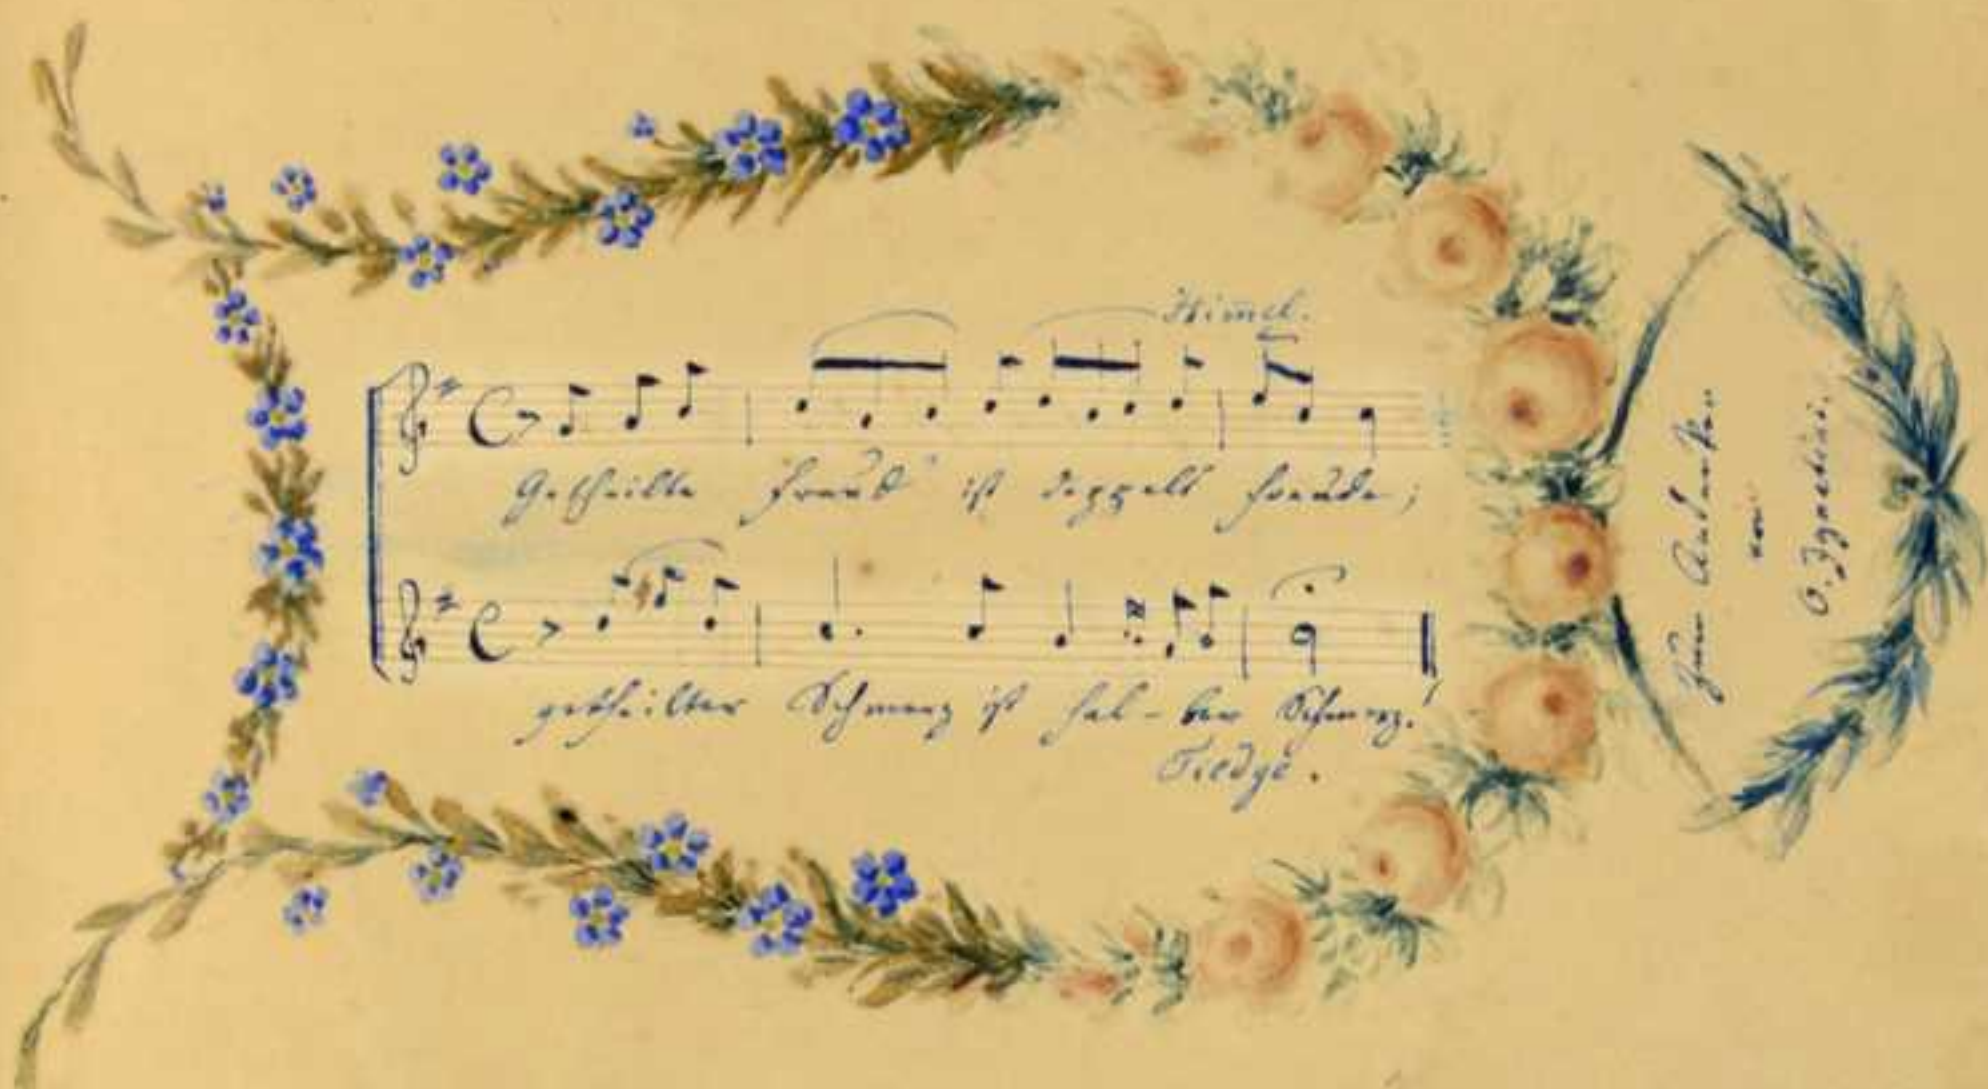 Himel.
Getheilte Freud' ist doppelt Freude;
getheilter Schmerz ist hal-ber Schmerz!
Tiedge.
Zum Andenken
von